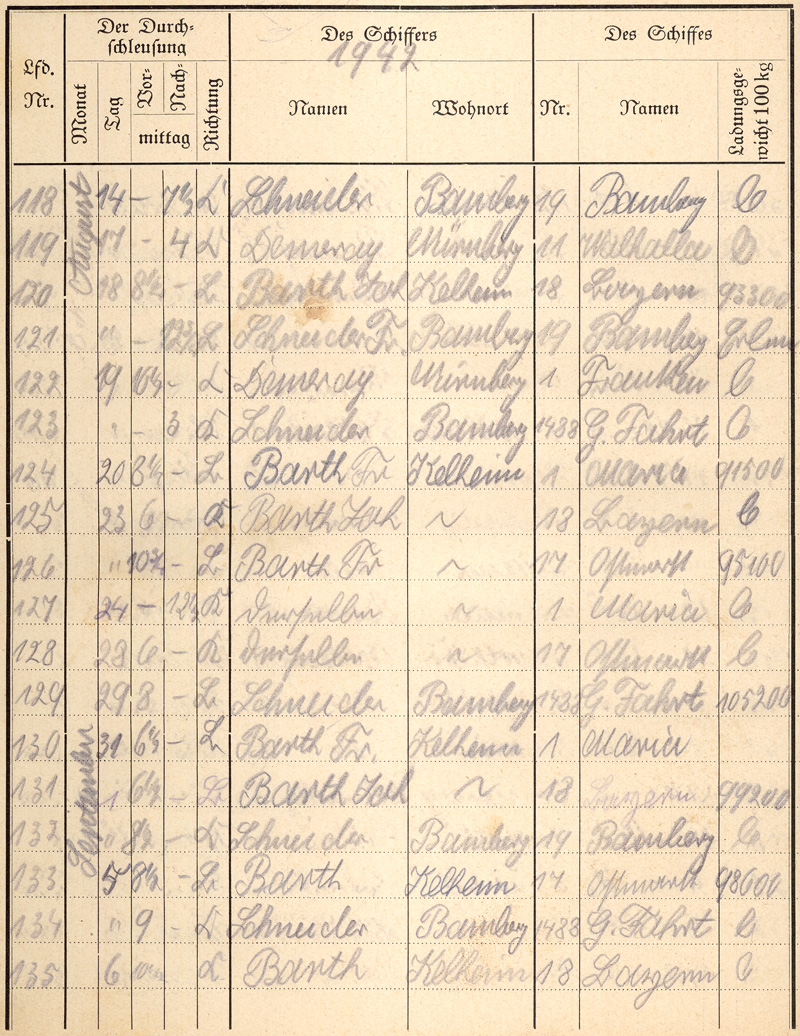 Lfd. Nr. Der Durchschleusung Des Schiffers Des Schiffes
1942
Monat Tag Vor- Nach- mittag Richtung Namen Wohnort Nr. Namen Ladungsgewicht 100 kg
118 August 14 – 7½ K Schneider Bamberg 19 Bamberg
119 17 - 4 K Demeray Nürnberg 11 Walhalla
120 18 8½ - L Barth Joh Kelheim 18 Bayern 93300
121 " – L Schneider Fr. Bamberg 19 Bamberg
122 19 10½ - K Demeray Nürnberg 1 Franken
123 " - 3 K Schneider Bamberg 1488 G. Fahrt
124 20 8½ - L Barth Fr Kelheim 1 Maria 91500
125 23 6 - K Barth Joh ~ 18 Bayern
126 " - L Barth Fr ~ 17 Ostmark 95100
127 24 – K derselbe ~ 1 Maria
128 28 6 - K derselbe ~ 17 Ostmark
129 29 8 - L Schneider Bamberg 1488 G. Fahrt 105200
130 31 6½ - L Barth Fr. Kelheim 1 Maria
131 September 1 6½ - L Barth Joh ~ 18 Bayern 99200
132 " 8½ - K Schneider Bamberg 19 Bamberg
133 5 8½ - L Barth Kelheim 17 Ostmark 98600
134 " 9 - K Schneider Bamberg 1488 G. Fahrt
135 6 K Barth Kelheim 18 Bayern